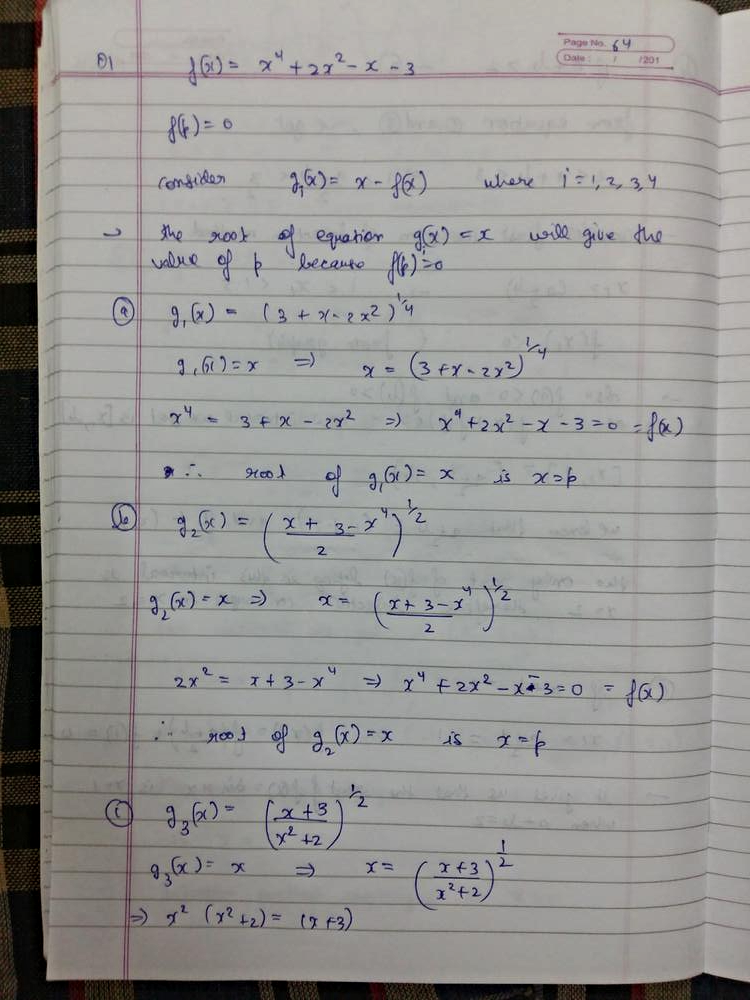 Page No. 64
Date : / /201
Q1 f(x) = x⁴ + 2x² - x - 3
f(p) = 0
consider g₁(x) = x - f(x) where i = 1, 2, 3, 4
→ the root of equation g(x) = x will give the
value of p because f(p) = 0
(a) g₁(x) = (3 + x - 2x²)^1/4
g₁(x) = x ⇒ x = (3 + x - 2x²)^1/4
x⁴ = 3 + x - 2x² ⇒ x⁴ + 2x² - x - 3 = 0 = f(x)
∴ root of g₁(x) = x is x = p
(b) g₂(x) = ((x + 3 - x⁴)/2)^1/2
g₂(x) = x ⇒ x = ((x + 3 - x⁴)/2)^1/2
2x² = x + 3 - x⁴ ⇒ x⁴ + 2x² - x - 3 = 0 = f(x)
∴ root of g₂(x) = x is x = p
(c) g₃(x) = ((x + 3)/(x² + 2))^1/2
g₃(x) = x ⇒ x = ((x + 3)/(x² + 2))^1/2
⇒ x² (x² + 2) = (x + 3)